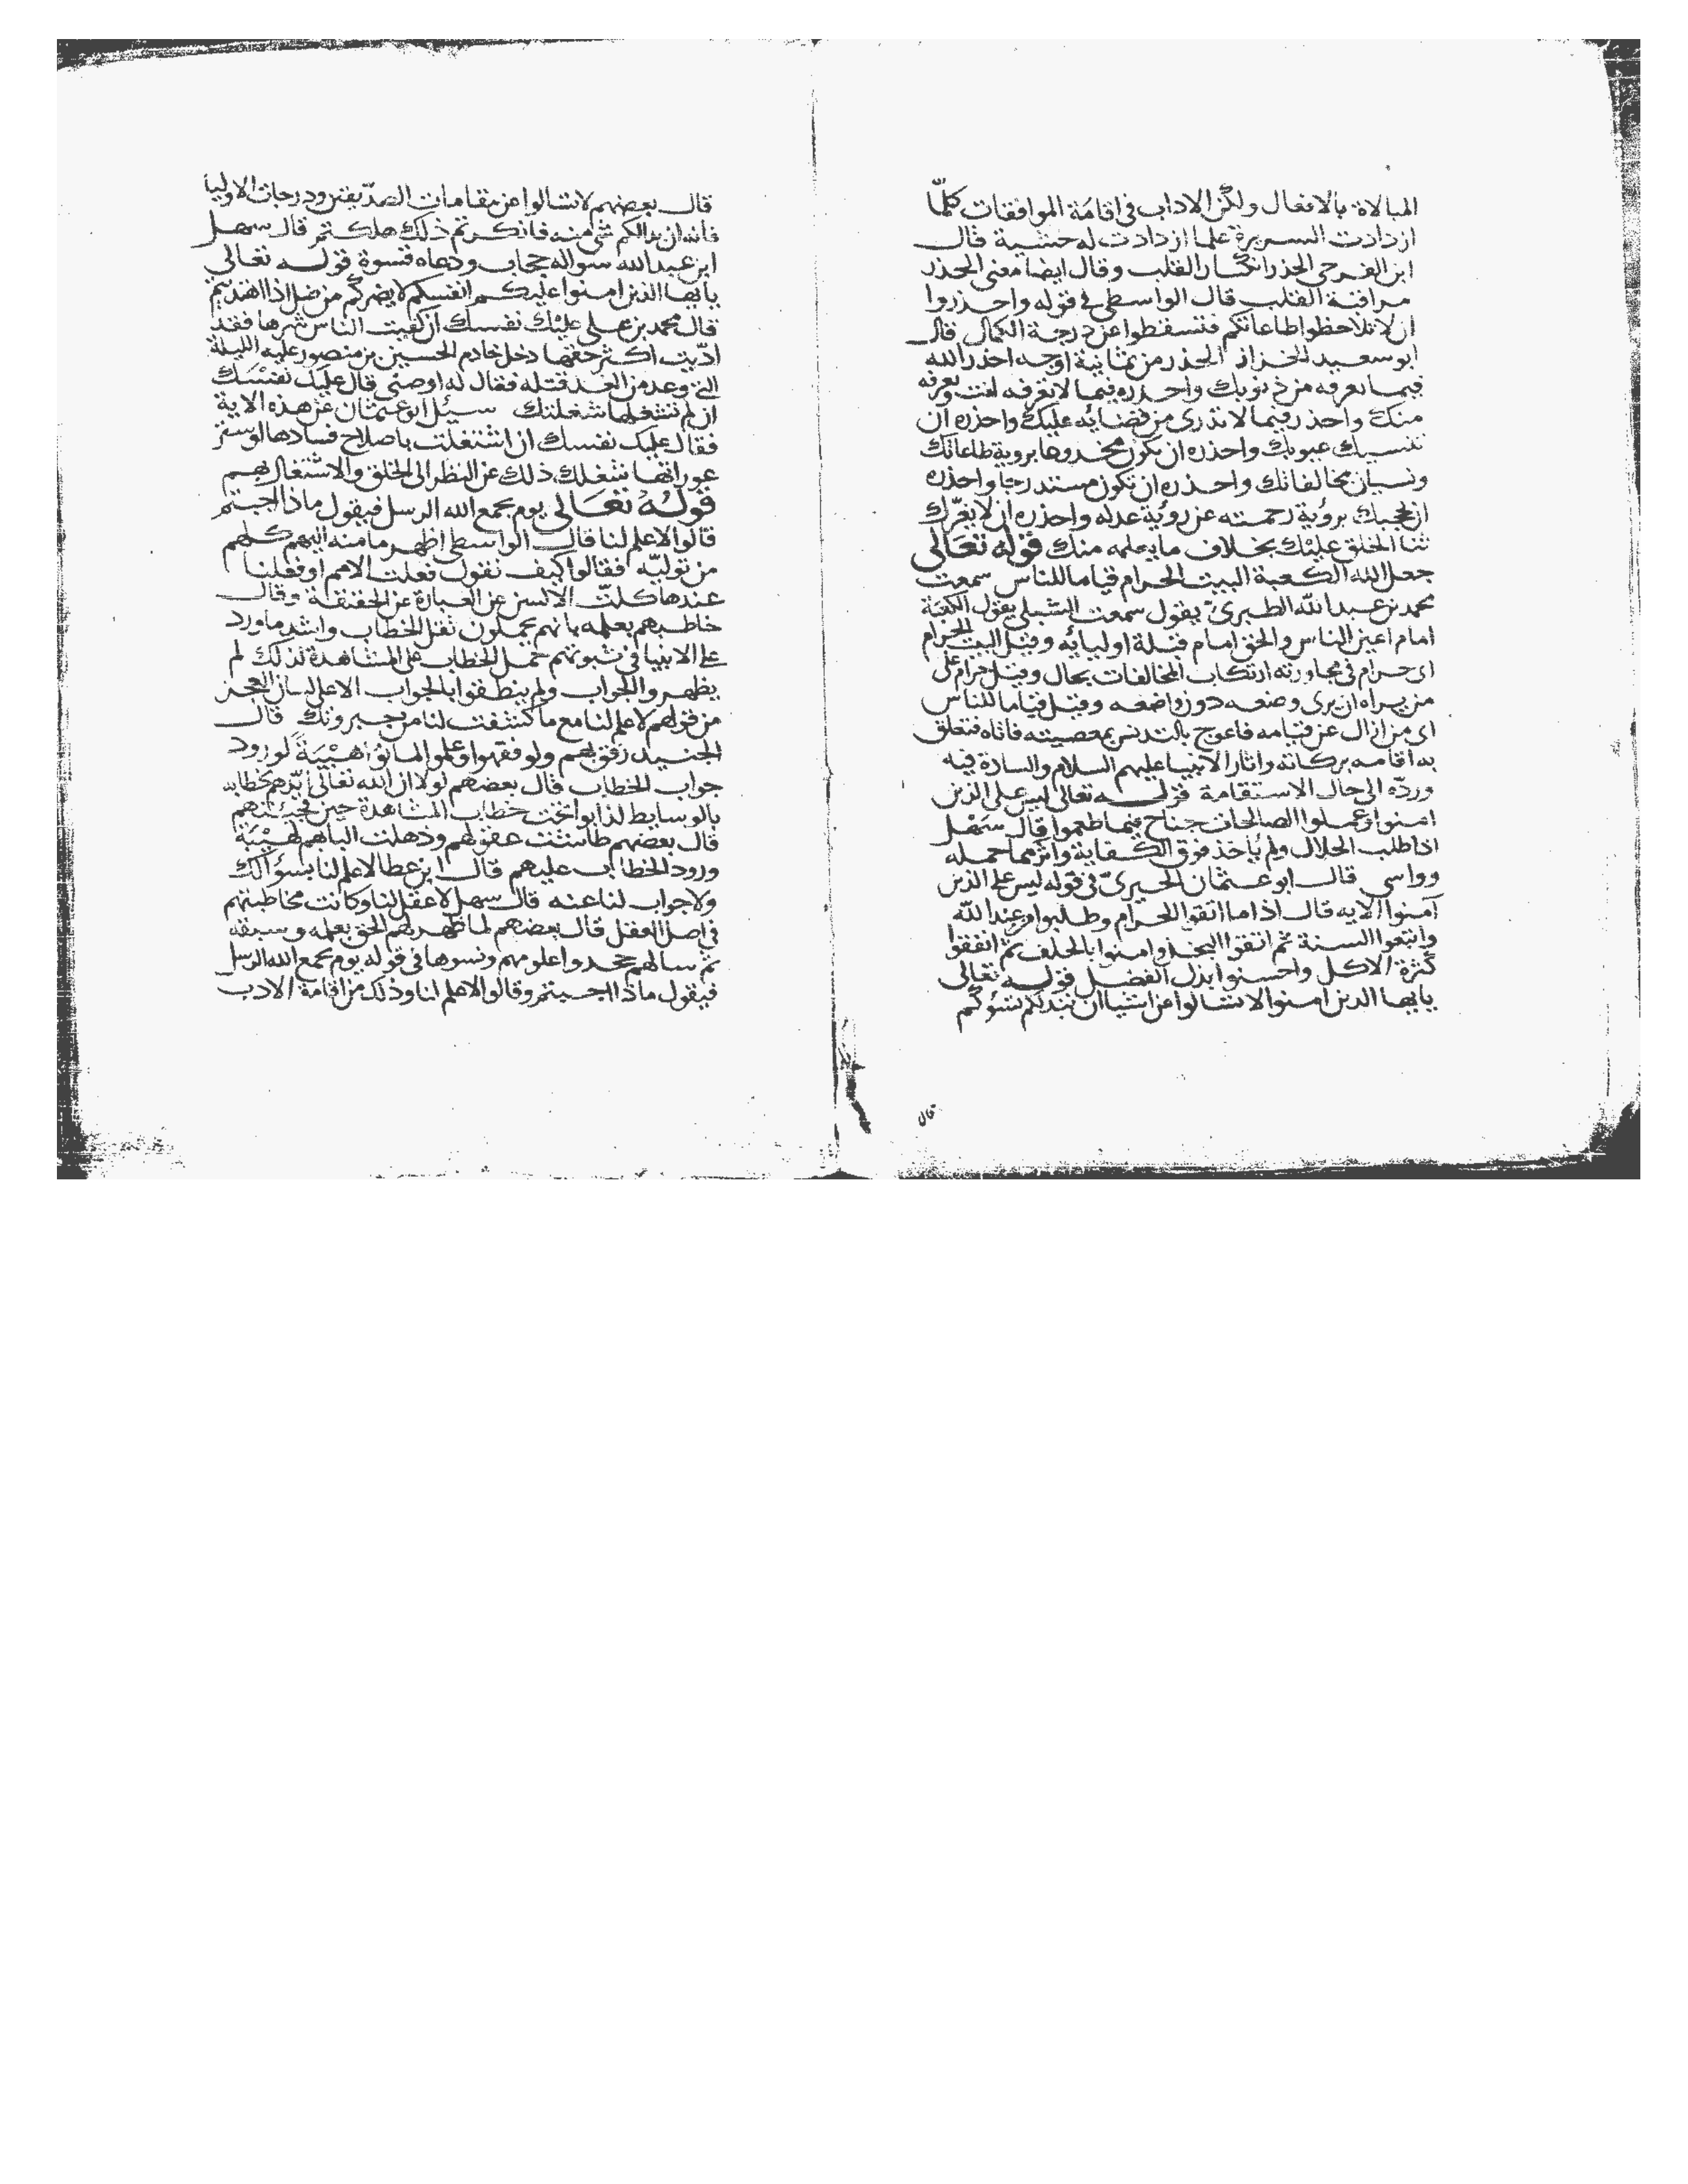 المبالاة بالافعال ولكن الاداب في اقامة الموافقات كلما
ازدادت السريرة علما ازدادت له خشية قال
ابن الفرحى الحذر انكسار القلب وقال ايضا معنى الحذر
مراقبة القلب قال الواسطى في قوله واحذروا
ان لا تلاحظوا طاعاتكم فتسقطوا عن درجة الكمال قال
ابو سعيد الخراز الحذر من ثمانية اوجه احذر الله
فيما يعرفه من ذنوبك واحذره فيما لا تعرفه انت ويعرفه
منك واحذر فيما لا تدرى من قضايه عليك واحذره ان
تنسيك عيوبك واحذره ان تكون مخدوعا بروية طاعاتك
ونسيان مخالفاتك واحذره ان تكون مستدرجا واحذره
ان يحجبك برؤية رحمته عن رؤية عدله واحذره ان لا يغرك
ثنا الخلق عليك بخلاف ما يعلمه منك قوله تعالى
جعل الله الكعبة البيت الحرام قياما للناس سمعت
محمد بن عبد الله الطبرى يقول سمعت الشبلي يقول الكعبة
امام اعين الناس والحق امام قبلة اوليائه وقيل البيت الحرام
اى حرام في مجاورته ارتكاب المخالفات بحال وقيل حرام على
من يراه ان يرى وضعه دون واضعه وقيل قياما للناس
اى من زال عن قيامه فاعوج بالتدنس بمعصيته فاتاه فتعلق
به اقامه بركاته واثار الانبيا عليهم السلام والسادة فيه
وردّه الى حال الاستقامة قوله تعالى ليس على الذين
امنوا وعملوا الصالحات جناح فيما طعموا قال سهل
اذا طلب الحلال ولم يأخذ فوق الكفاية واثر مما حمله
وواسى قال ابو عثمان الحيرىّ في قوله ليس على الذين
آمنوا الايه قال اذا ما اتقوا الحرام وطلبوا من عند الله
واتبعوا السنة ثم اتقوا البخل وامنوا بالخلف ثم اتقوا
كثرة الاكل واحسنوا بذل الفضل قوله تعالى
يايها الذين امنوا لا تسالوا عن اشيا ان تبد لكم تسؤكم
قال
قال بعضهم لا تسالوا عن مقامات الصدّيقين ودرجات الاوليا
فانه ان بدا لكم شى منه فانكرتم ذلك هلكتم قال سهل
ابن عبد الله سواله حجاب ودعاه قسوة قوله تعالى
يايها الذين امنوا عليكم انفسكم لا يضركم من ضل اذا اهتديتم
قال محمد بن على عليك نفسك ان كفيت الناس شرها فقد
ادّيت اكثر حقها دخل خادم الحسين بن منصور عليه الليلة
التي وعد من الغد قتله فقال له اوصنى قال عليك نفسك
ان لم تشغلها شغلتك سيئل ابو عثمان عن هذه الاية
فقال عليك نفسك ان اشتغلت باصلاح فسادها وستر
عوراتها شغلك ذلك عن النظر الى الخلق والاشتغال بهم
قوله تعالى يوم يجمع الله الرسل فيقول ماذا اجبتم
قالوا لا علم لنا قال الواسطى اظهر ما منه اليهم كلهم
من توليّه فقالوا كيف نقول فعلت الامم او فعلنا
عندها كلّت الالسن عن العبارة عن الحقيقة وقال
خاطبهم بعلمه بانهم يحملون ثقل الخطاب واشد ما ورد
على الانبيا في نبوتهم حمل الخطاب على المشاهدة لذلك لم
يظهروا الجواب ولم ينطقوا بالجواب الا على لسان العجز
من قولهم لا علم لنا مع ما كشفت لنا من جبروتك قال
الجنيد رفق بهم ولو فقهوا وعلموا لماتوا هيبةً لورود
جواب الخطاب قال بعضهم لولا ان الله تعالى ابرزهم خطابه
بالوسايط لذابوا تحت خطاب المشاهدة حين
قال بعضهم طاشت عقولهم وذهلت البابهم لهيبة
ورود الخطاب عليهم قال ابن عطا لا علم لنا بسؤالك
ولا جواب لنا عنه قال سهل لا عقل لنا وكانت مخاطبتهم
في اصل العقل قال بعضهم لما ظهر لهم الحق بعلمه وسبقه
ثم سالهم جحدوا علومهم ونسوها في قوله يوم يجمع الله الرسل
فيقول ماذا اجبتم وقالوا لا علم لنا وذلك من اقامة الادب